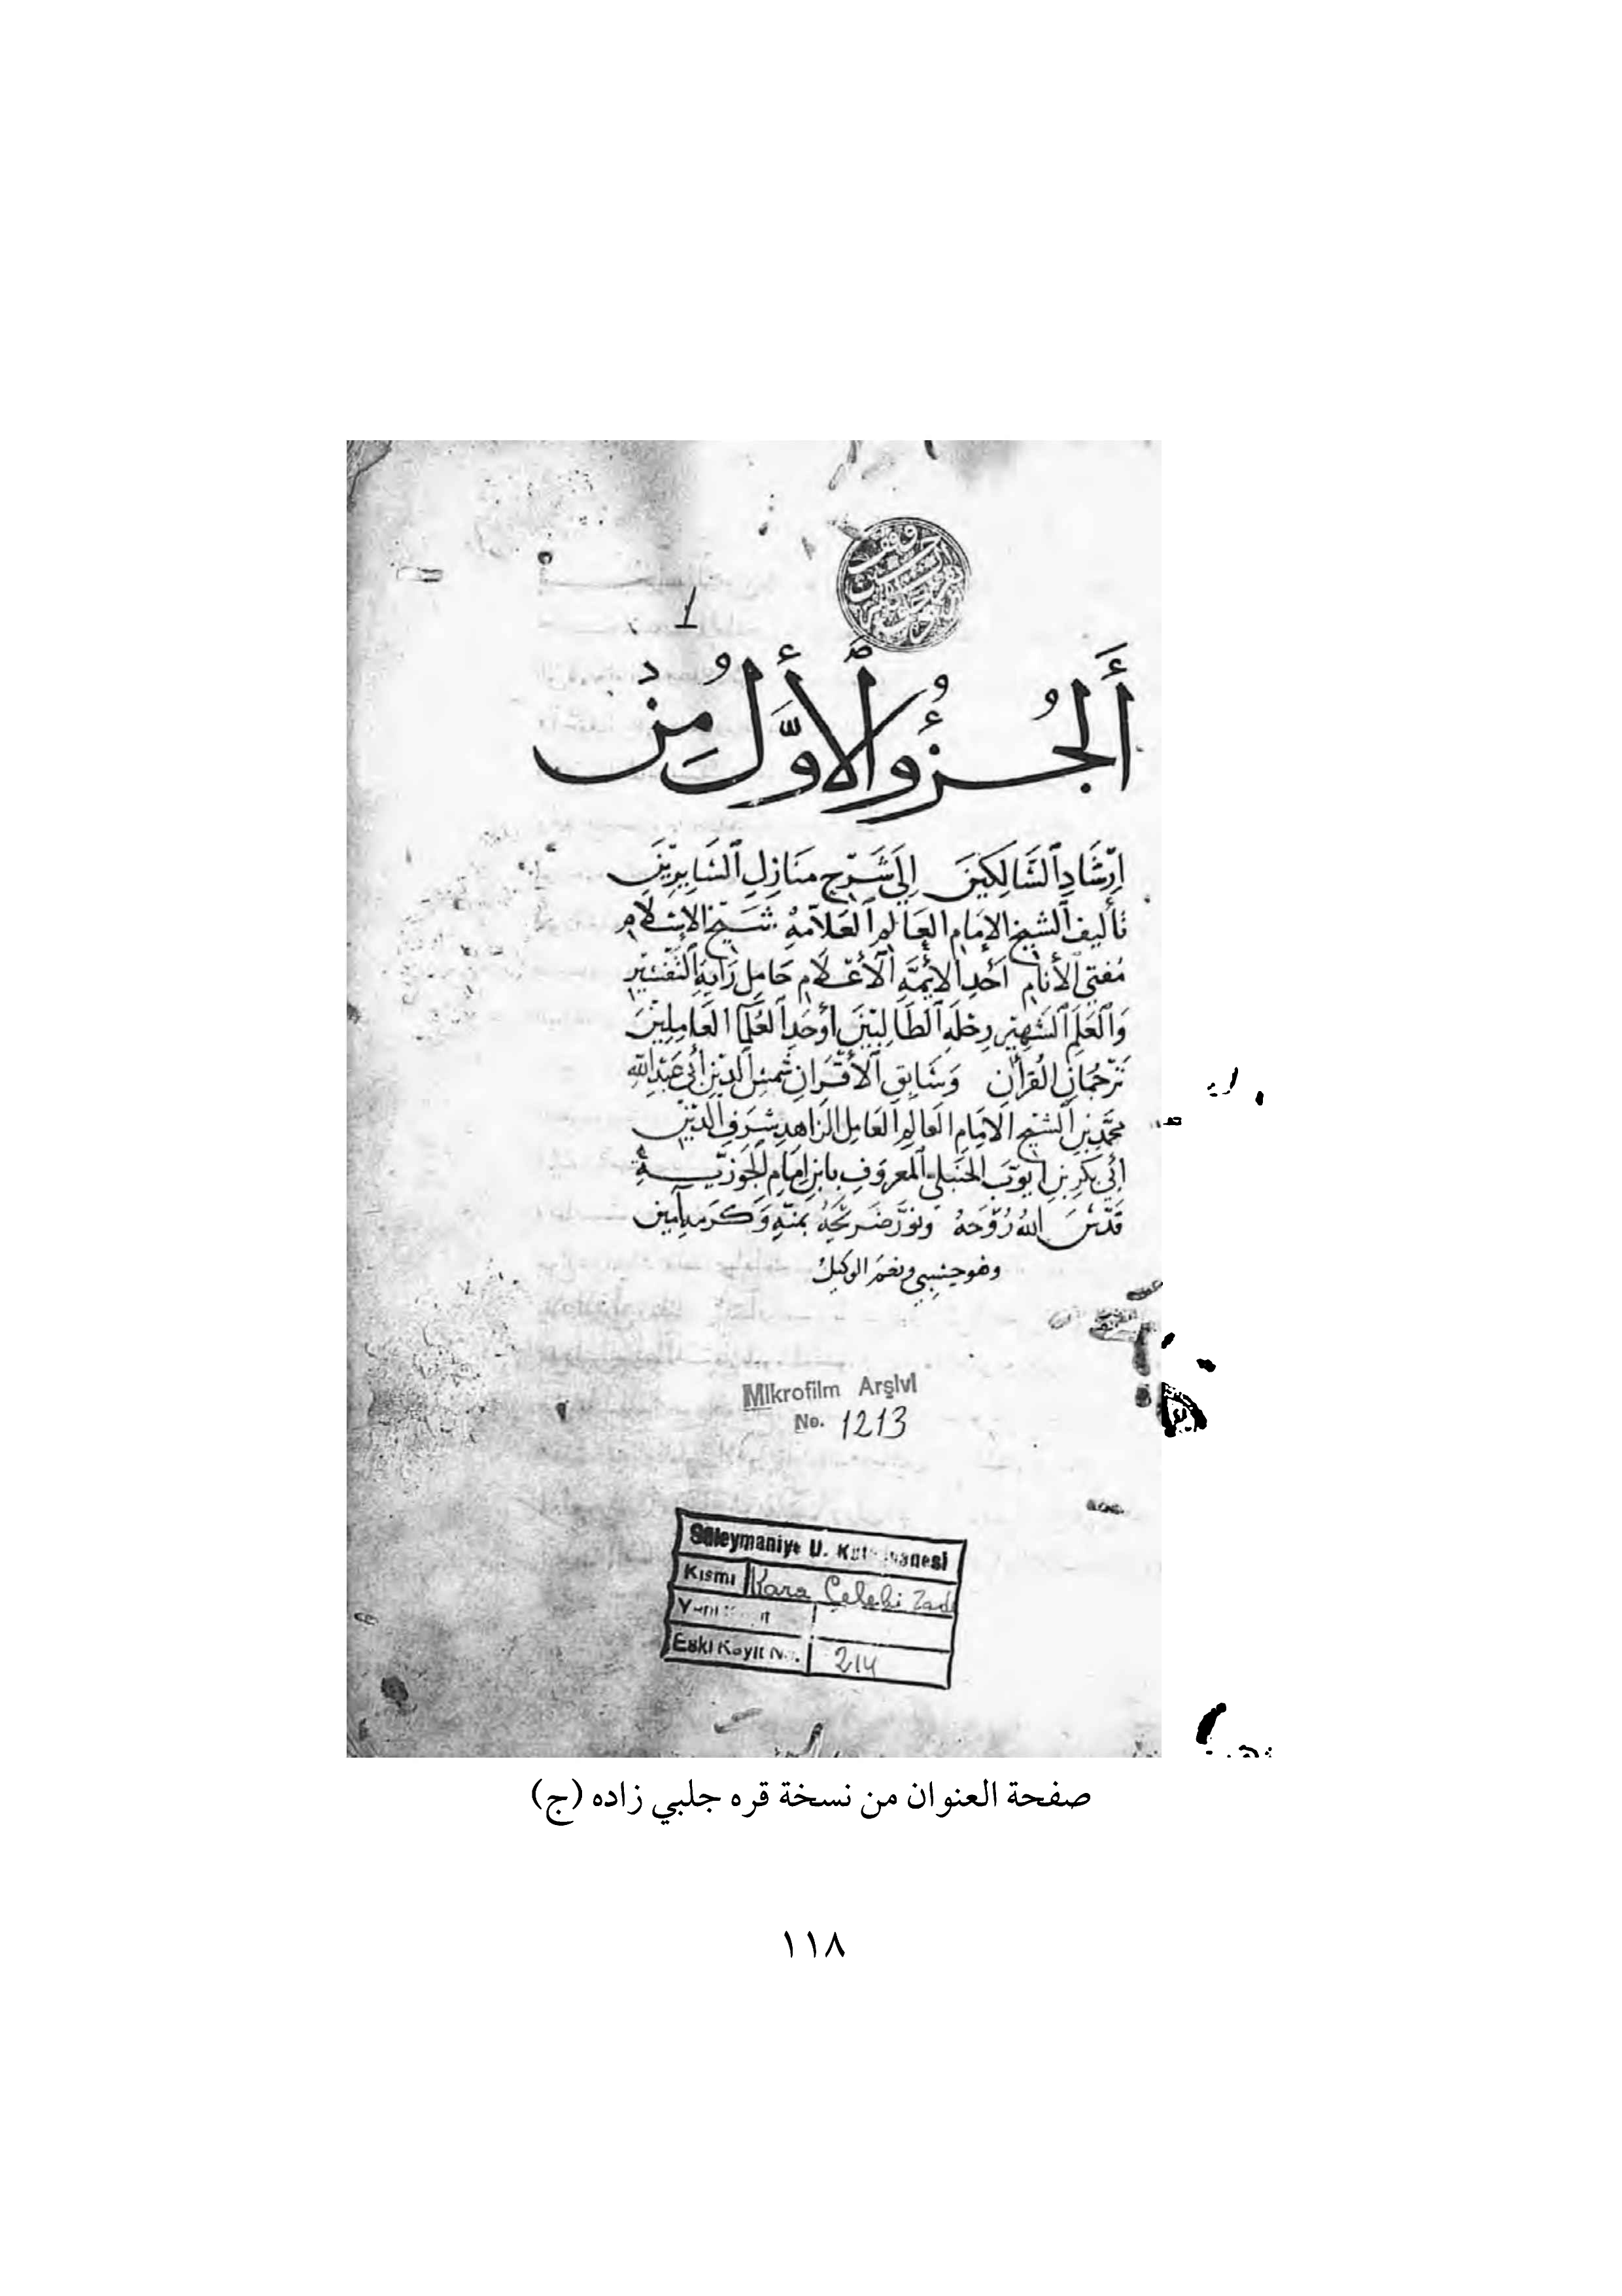 1
أَلجُزؤُ ٱلأَوَّلُ مِنْ
إِرْشَادِ ٱلسَّالِكِينَ إِلَى شَرْحِ مَنَازِلِ ٱلسَّايِرِينَ
تأليف ٱلشيخ الإمام العالم ٱلعَلاّمة شيخ الإسلام
مُفتي الأنام أحد الأئِمَّة ٱلأعْلام حَامِل رَايةِ ٱلتفْسِير
وَٱلعَلَم ٱلشَهِير رحلة ٱلطَالِبينَ أوحد ٱلعُلمآ العَامِلينَ
تَرْجُمَان القُرآن وَسَابِق ٱلأقْرَان شمس الدين أبي عَبدِ الله
محمّد بن ٱلشيخ الإمام العالم ٱلعَامِل الزاهد شرَف الدّين
أبي بَكر بن أيوبَ الحنبَلي ٱلمعروف بابن إمام الجَوزِيّة
قَدَّسَ اللهُ رُوْحَهُ ونوَّر ضَريحَهُ بمنّهِ وَكَرَمه آمين
وهو حسبي ونعم الوكيل
Mikrofilm Arşivi
No. 1213
Süleymaniye U. Kütüphanesi
Kısmı Kara Çelebi Zade
Eski Kayıt No. 214
صفحة العنوان من نسخة قره جلبي زاده (ج)
١١٨